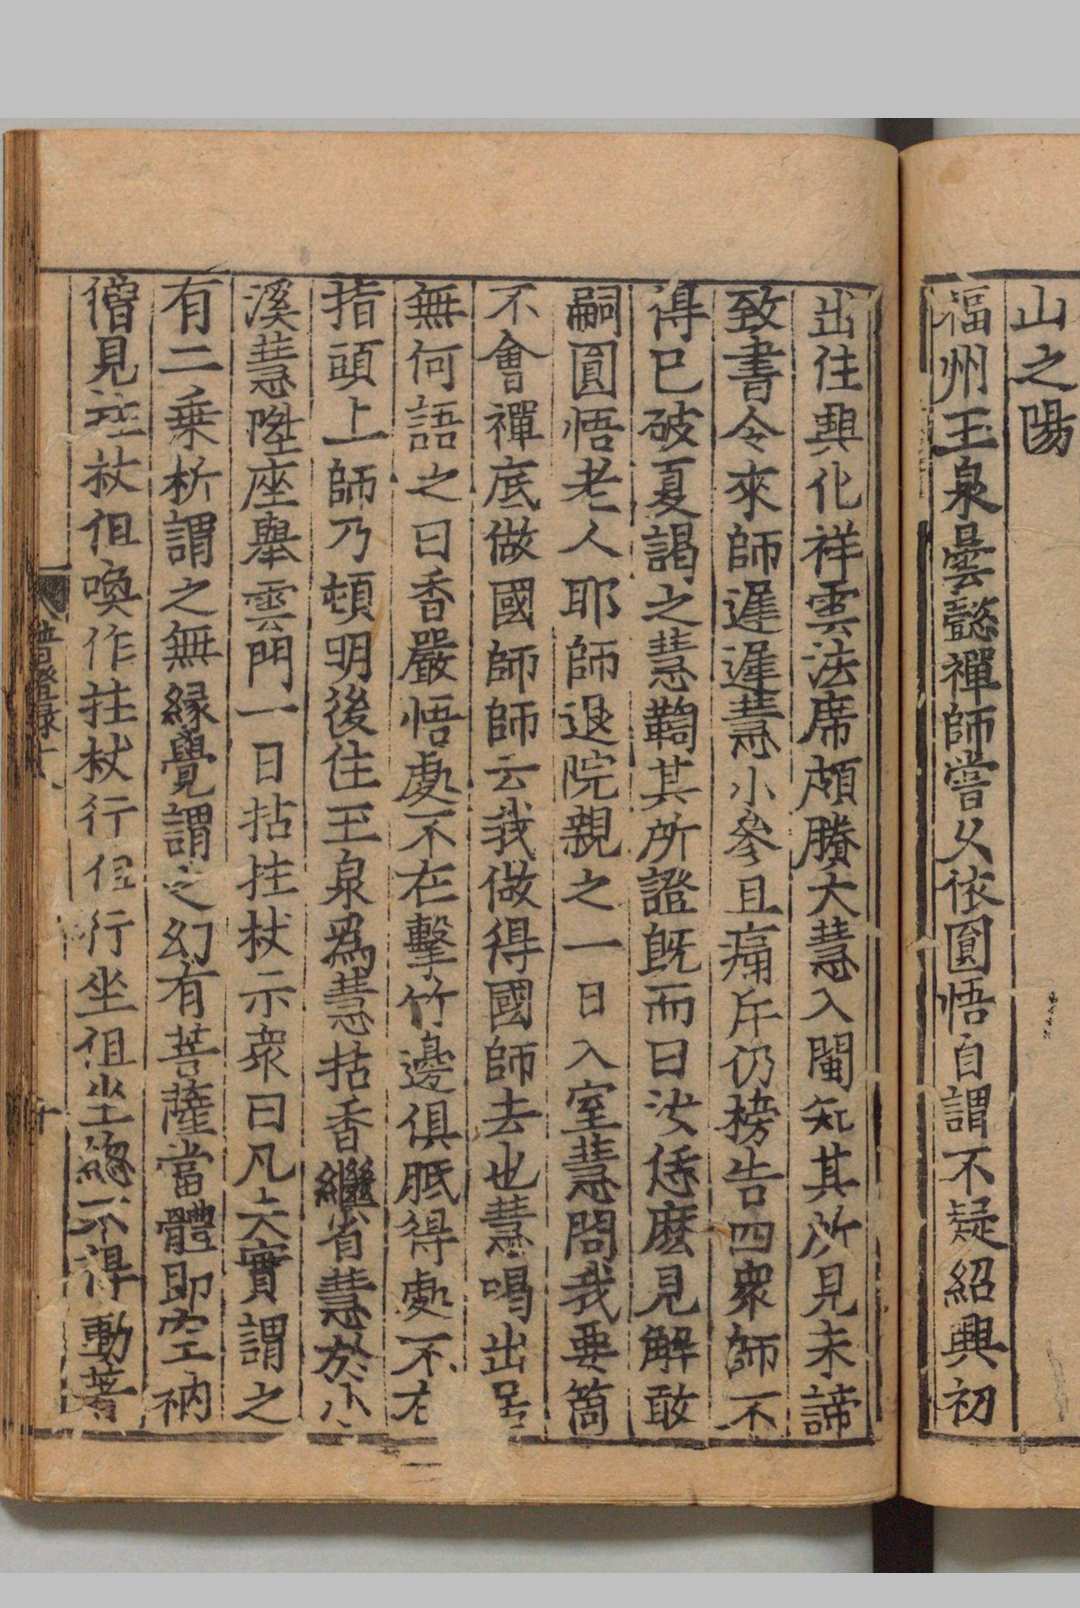 山之陽
福州玉泉曇懿禪師嘗久依圓悟自謂不疑紹興初
出住興化祥雲法席頗勝大慧入閩知其所見未諦
致書令來師遲遲慧小參且痛斥仍榜告四衆師不
得已破夏謁之慧鞫其所證旣而曰汝恁麽見解敢
嗣圓悟老人耶師退院親之一日入室慧問我要箇
不會禪底做國師師云我做得國師去也慧喝出居
無何語之曰香嚴悟處不在擊竹邊俱胝得處不在
指頭上師乃頓明後住玉泉爲慧拈香繼省慧於小
溪慧陞座舉雲門一日拈拄杖示衆曰凡夫實謂之
有二乗析謂之無縁覺謂之幻有菩薩當體即空衲
僧見拄杖但喚作拄杖行但行坐但坐總不得動著
普燈錄十八